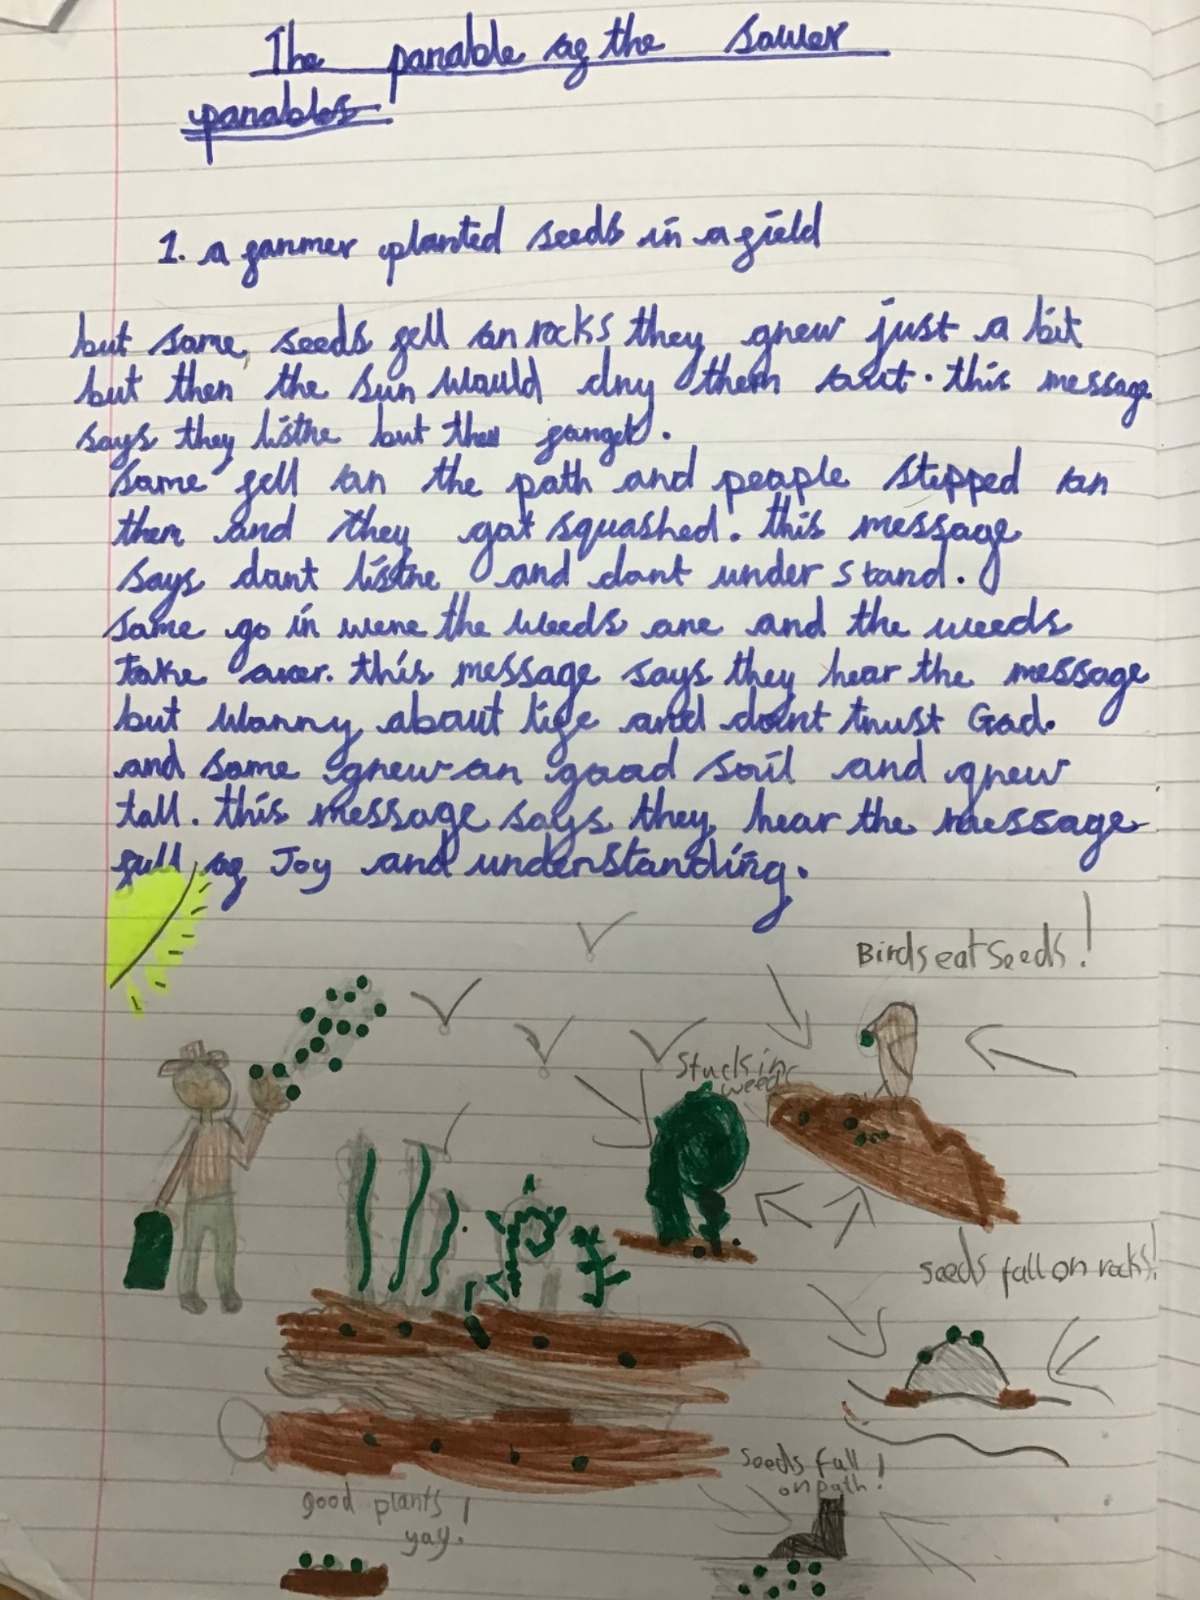 The parable of the sower
parables
1. a farmer planted seeds in a field
but some, seeds fell on rocks they grew just a bit
but then the sun would dry them out. this message
says they listne but then forget.
some fell on the path and people stepped on
them and they got squashed. this message
says dont listne and dont under stand.
some go in were the weeds are and the weeds
take over. this message says they hear the message
but worry about life and doint trust God.
and some grew on good soil and grew
tall. this message says they hear the message
full of Joy and understanding.
Birds eat seeds!
Stuck in
weeds
seeds fall on rocks!
seeds fall
on path!
good plants!
yay!